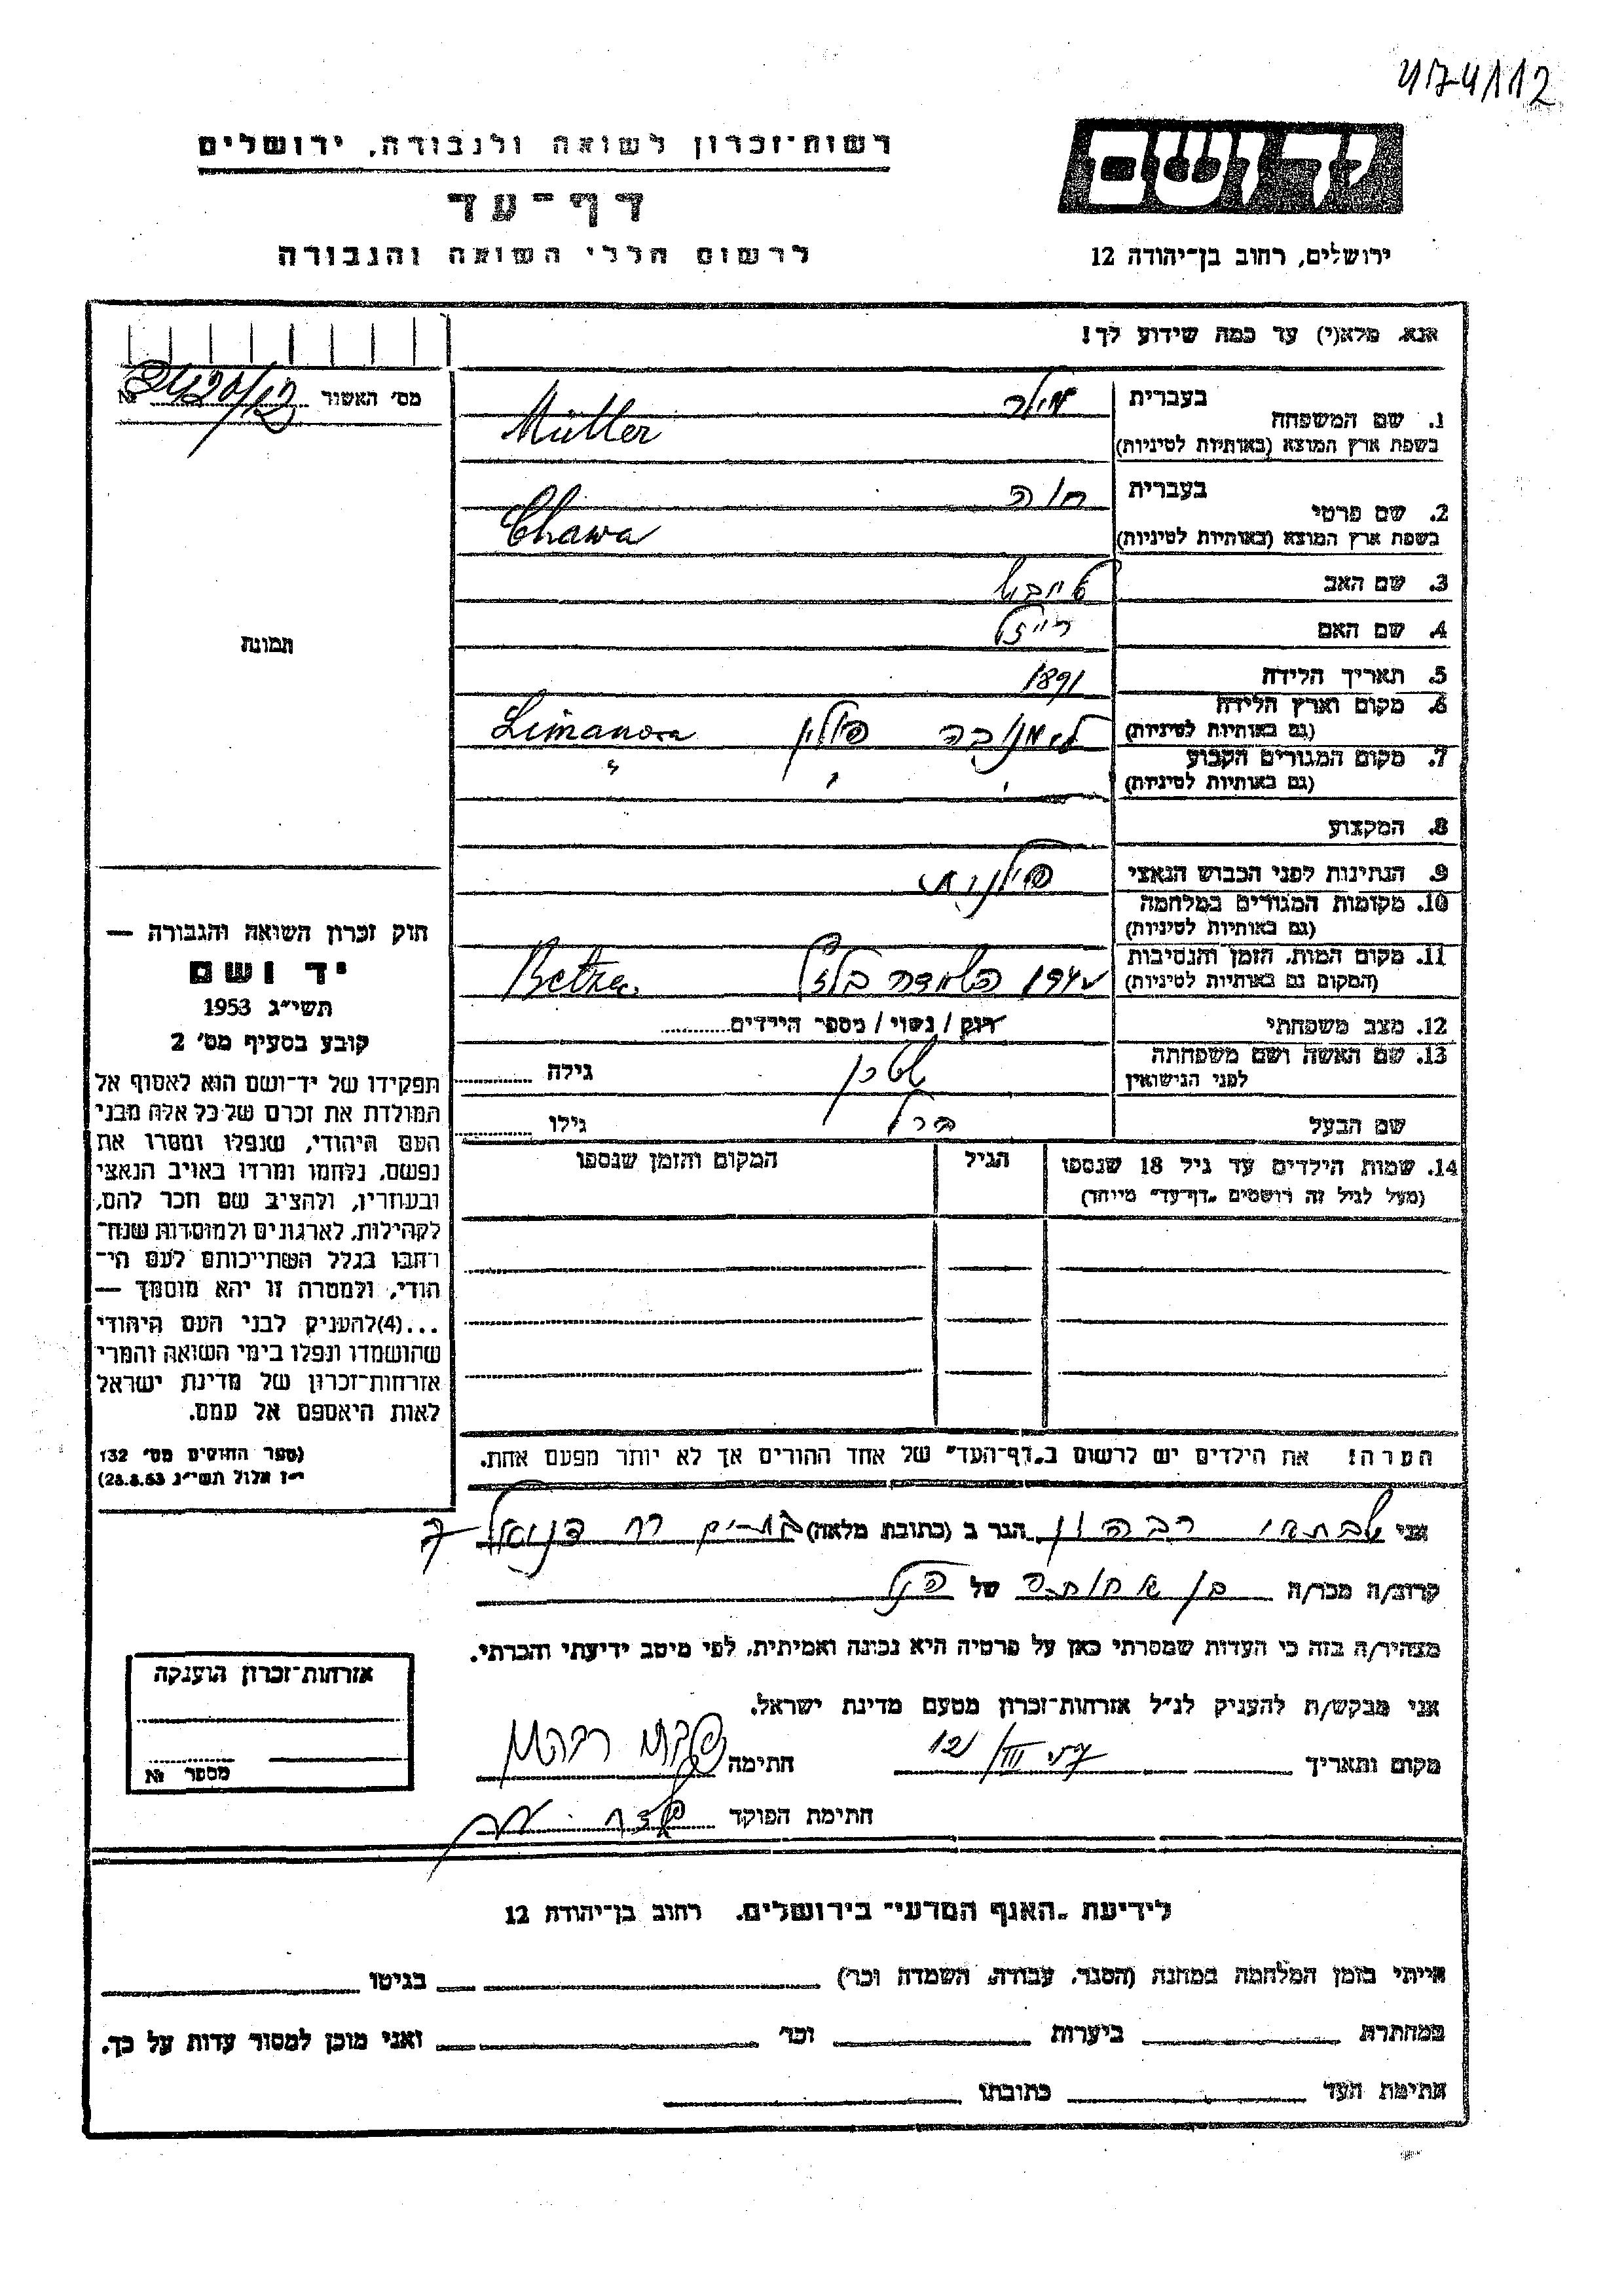 174/112
רשות־זכרון לשואה ולגבורה, ירושלים
דף־עד
לרשום חללי השואה והגבורה
יד ושם
ירושלים, רחוב בן־יהודה 12
אנא, מלא(י) עד כמה שידוע לך!
מס' האשור №
1. שם המשפחה
בעברית מילר
בשפת ארץ המוצא (באותיות לטיניות) Müller
2. שם פרטי
בעברית חוה
בשפת ארץ המוצא (באותיות לטיניות) Chawa
3. שם האב
4. שם האם רייזל
5. תאריך הלידה 1891
6. מקום וארץ הלידה לימנובה פולין Limanova
(גם באותיות לטיניות)
7. מקום המגורים הקבוע " " "
(גם באותיות לטיניות)
8. המקצוע
9. הנתינות לפני הכבוש הנאצי פולנית
10. מקומות המגורים במלחמה
(גם באותיות לטיניות)
11. מקום המות, הזמן והנסיבות
(המקום גם באותיות לטיניות)
12. מצב משפחתי רוק / נשוי / מספר הילדים
13. שם האשה ושם משפחתה
לפני הנישואין שטרן גילה
שם הבעל ברל גילו
14. שמות הילדים עד גיל 18 שנספו הגיל המקום והזמן שנספו
(מעל לגיל זה רושמים "דף־עד" מיוחד)
הערה: את הילדים יש לרשום ב"דף־העד" של אחד ההורים אך לא יותר מפעם אחת.
תמונה
חוק זכרון השואה והגבורה —
יד ושם
תשי"ג 1953
קובע בסעיף מס' 2
תפקידו של יד־ושם הוא לאסוף אל
המולדת את זכרם של כל אלה מבני
העם היהודי, שנפלו ומסרו את
נפשם, נלחמו ומרדו באויב הנאצי
ובעוזריו, ולהציב שם וזכר להם,
לקהילות, לארגונים ולמוסדות שנח־
רבו בגלל השתייכותם לעם הי־
הודי, ולמטרה זו יהא מוסמך —
...(4)להעניק לבני העם היהודי
שהושמדו ונפלו בימי השואה והמרי
אזרחות־זכרון של מדינת ישראל
לאות היאספם אל עמם.
(ספר החוקים מס' 132
י"ז אלול תשי"ג 28.8.53)
אני שבתאי הגר ב (כתובת מלאה) בת־ים רח דניאל 7
קרוב/ה מכר/ה בן אחותה של הנ"ל
מצהיר/ה בזה כי העדות שמסרתי כאן על פרטיה היא נכונה ואמיתית, לפי מיטב ידיעתי והכרתי.
אני מבקש/ת להעניק לנ"ל אזרחות־זכרון מטעם מדינת ישראל.
מקום ותאריך חתימה
חתימת הפוקד
אזרחות־זכרון הוענקה
מספר №
לידיעת "האגף המדעי" בירושלים, רחוב בן־יהודה 12
הייתי בזמן המלחמה במחנה (הסגר, עבודה, השמדה וכו') בגיטו
במחתרת ביערות וכו' ואני מוכן למסור עדות על כך.
חתימת העד כתובתו